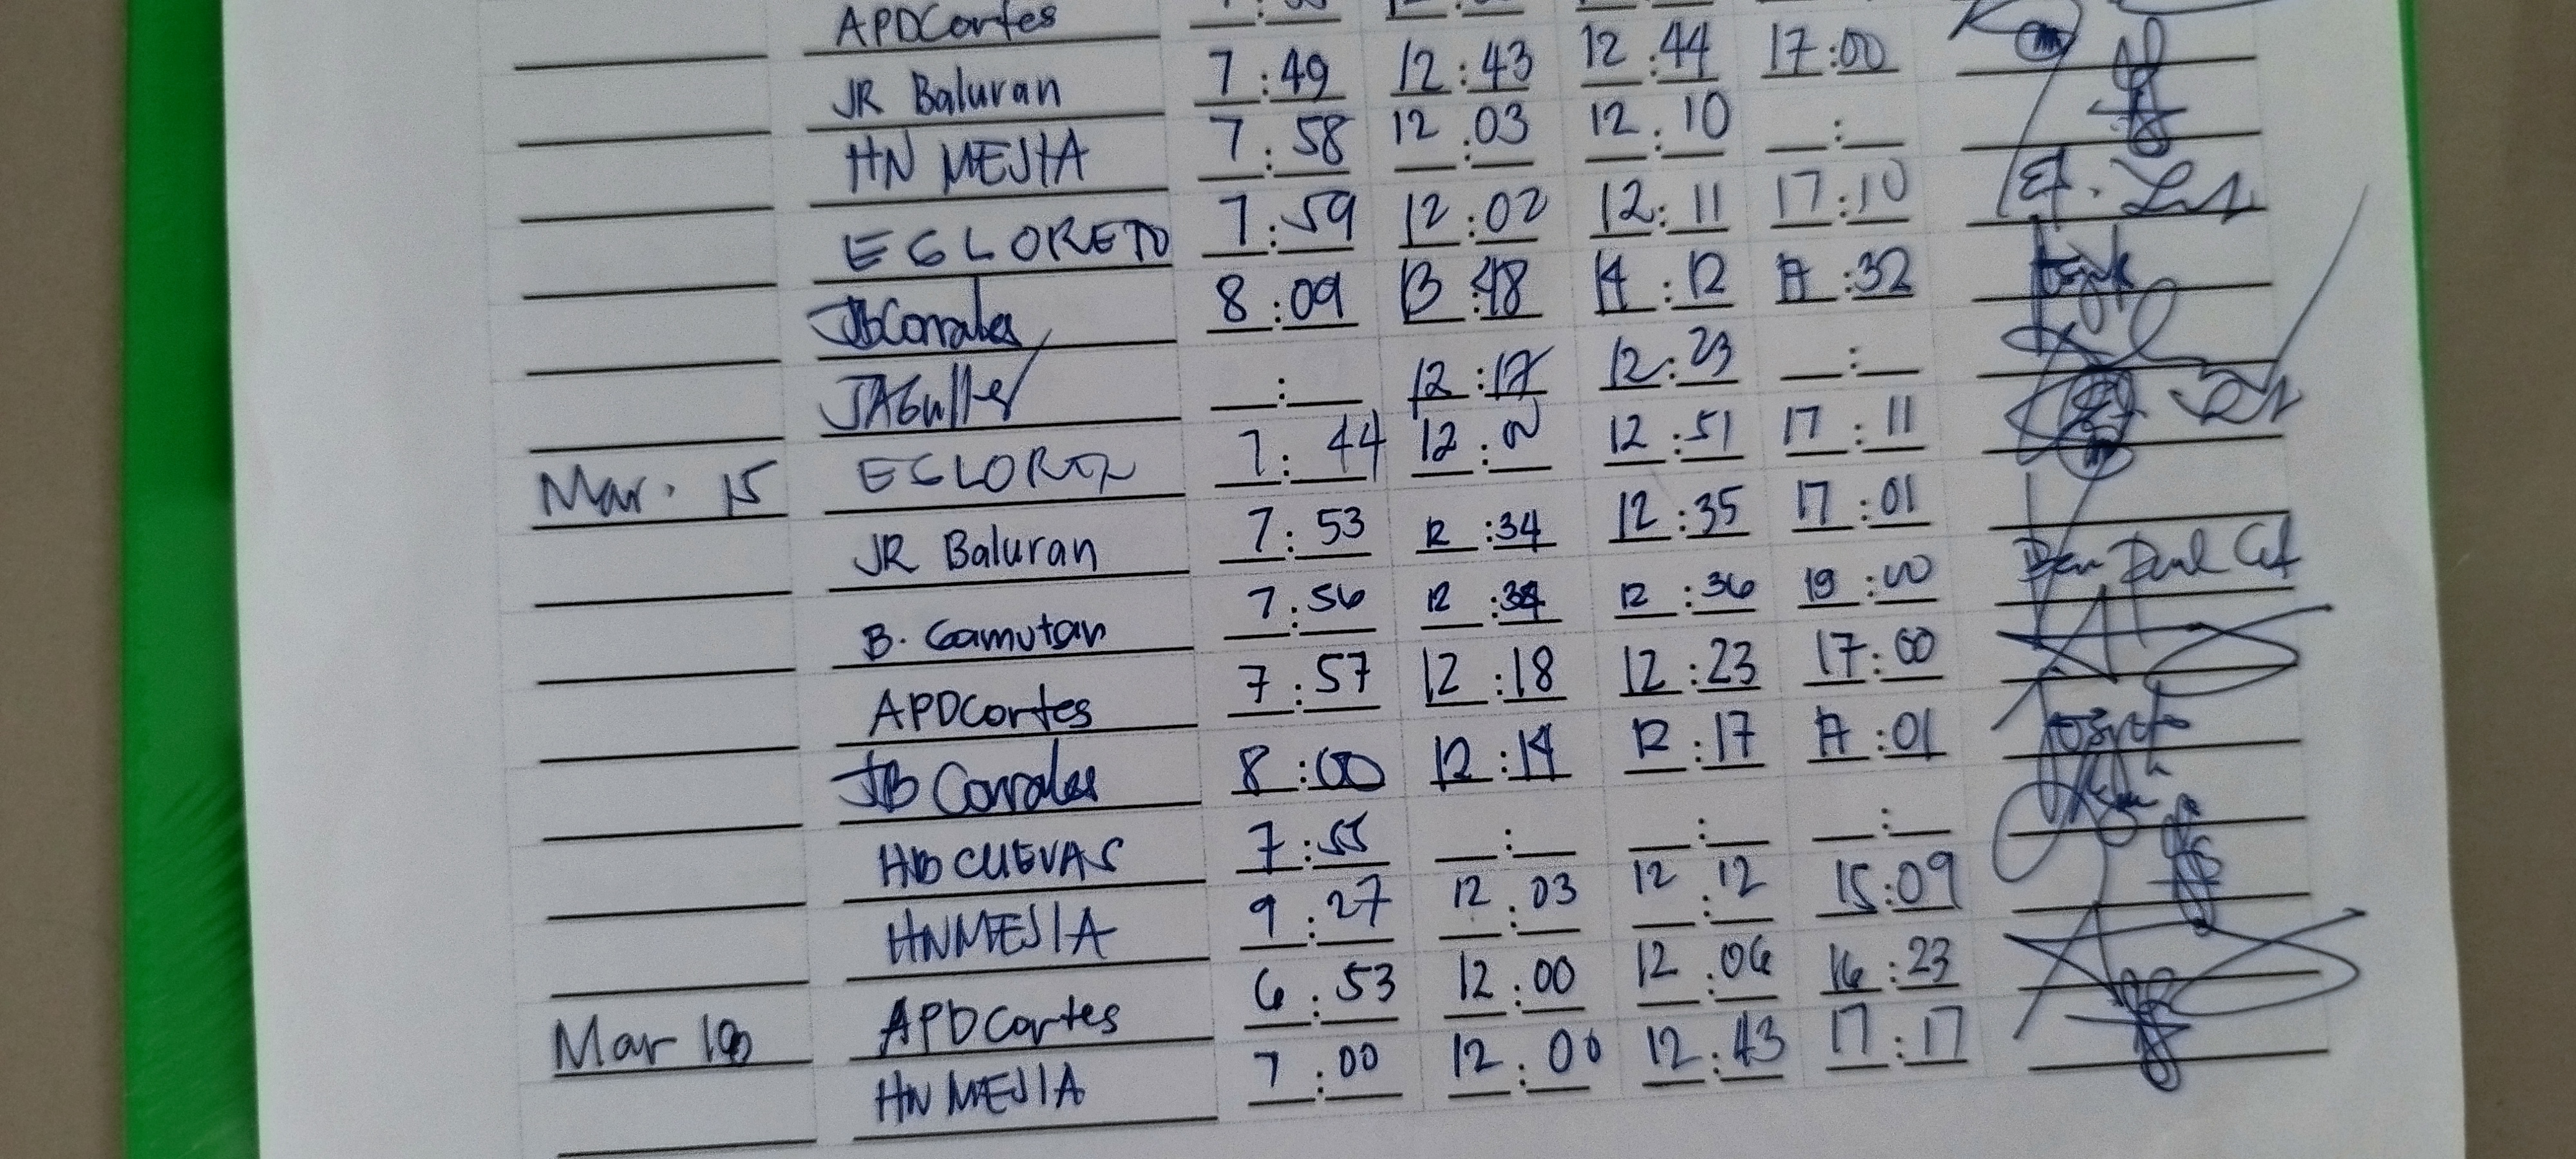 APDCortes
JR Baluran 7:49 12:43 12:44 17:00
HN MEJIA 7:58 12:03 12:10 __:__
EGLORETO 7:59 12:02 12:11 17:10
JBCorrales 8:09 13:48 14:12 17:32
__:__ 12:17 12:23 __:__
Mar. 15 7:44 12:00 12:51 17:11
JR Baluran 7:53 12:34 12:35 17:01
B. Gamutan 7:56 12:34 12:36 19:00
APDCortes 7:57 12:18 12:23 17:00
JB Corrales 8:00 12:14 12:17 17:01
HB CUEVAS 7:55 __:__ __:__ __:__
HNMEJIA 9:27 12:03 12:12 15:09
Mar APDCortes 6:53 12:00 12:06 16:23
HN MEJIA 7:00 12:00 12:43 17:17